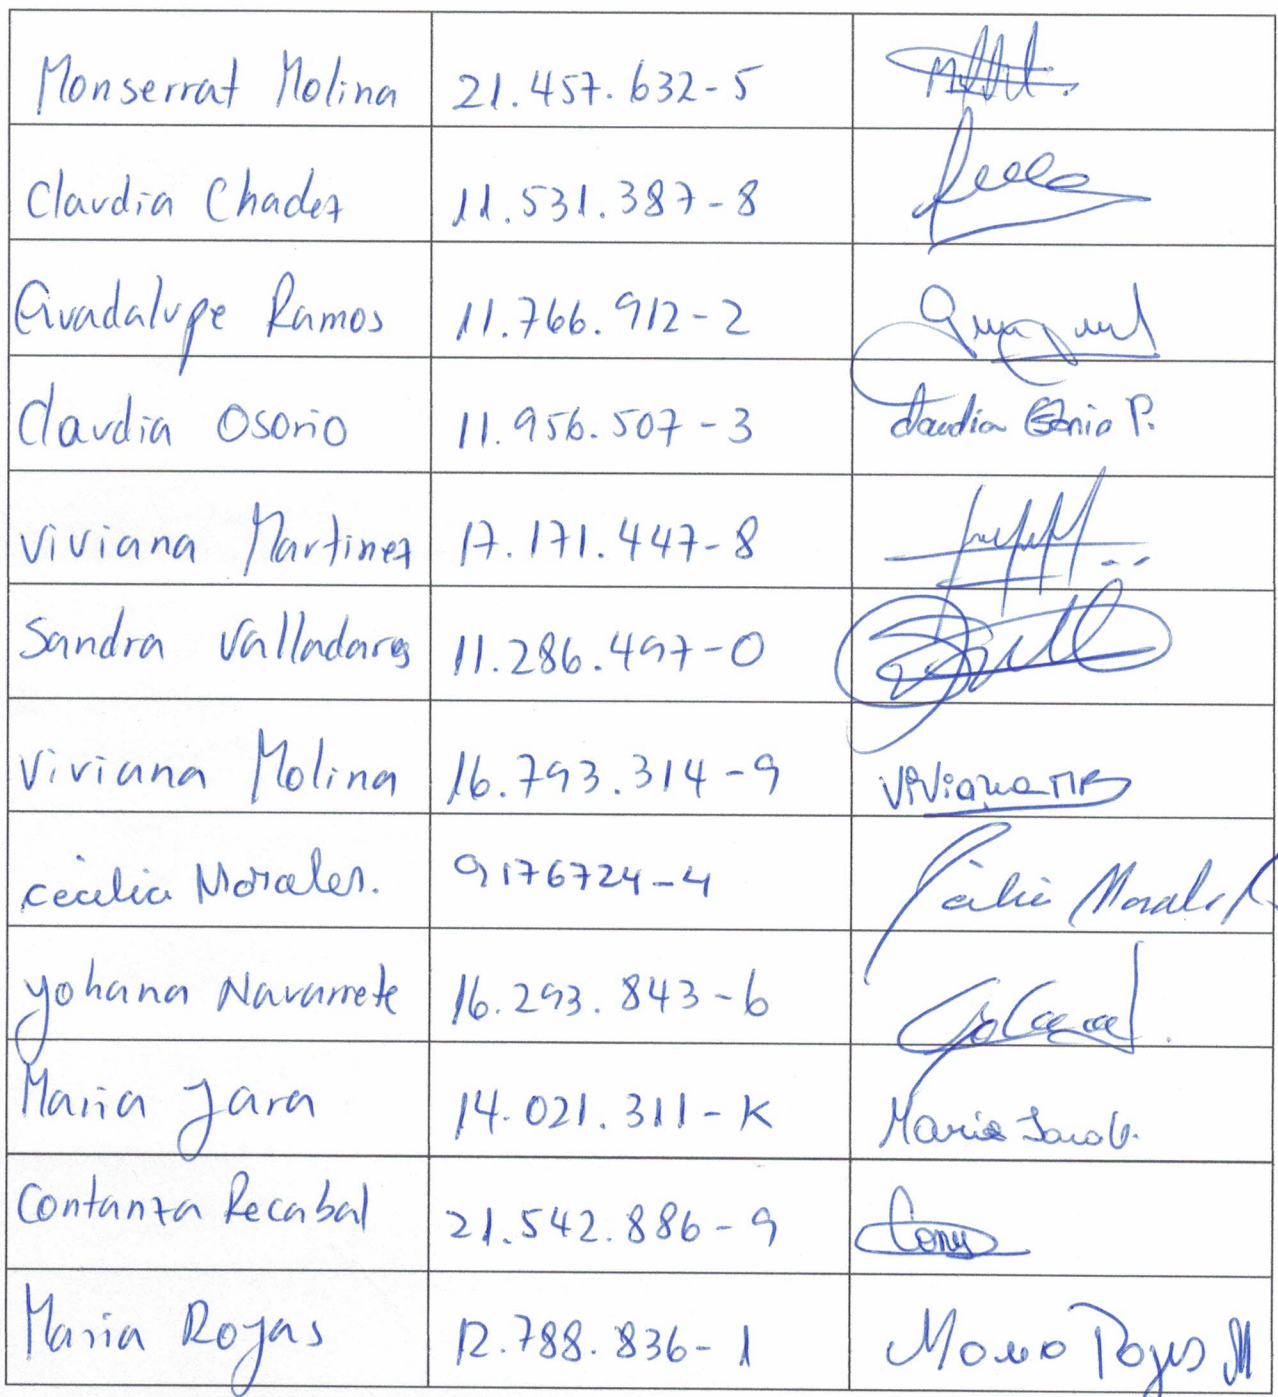 Monserrat Molina 21.457.632-5
Claudia Chadez 11.531.387-8
Guadalupe Ramos 11.766.912-2
Claudia Osorio 11.956.507-3 Claudia Osorio P.
Viviana Martinez 17.171.447-8
Sandra Valladares 11.286.497-0
Viviana Molina 16.793.314-9 Viviana MB
Cecilia Morales. 9176724-4 Cecilia Morales
Yohana Navarrete 16.293.843-6
Maria Jara 14.021.311-K Maria Jara
Contanza Recabal 21.542.886-9 Cony
Maria Rojas 12.788.836-1 Maria Rojas M